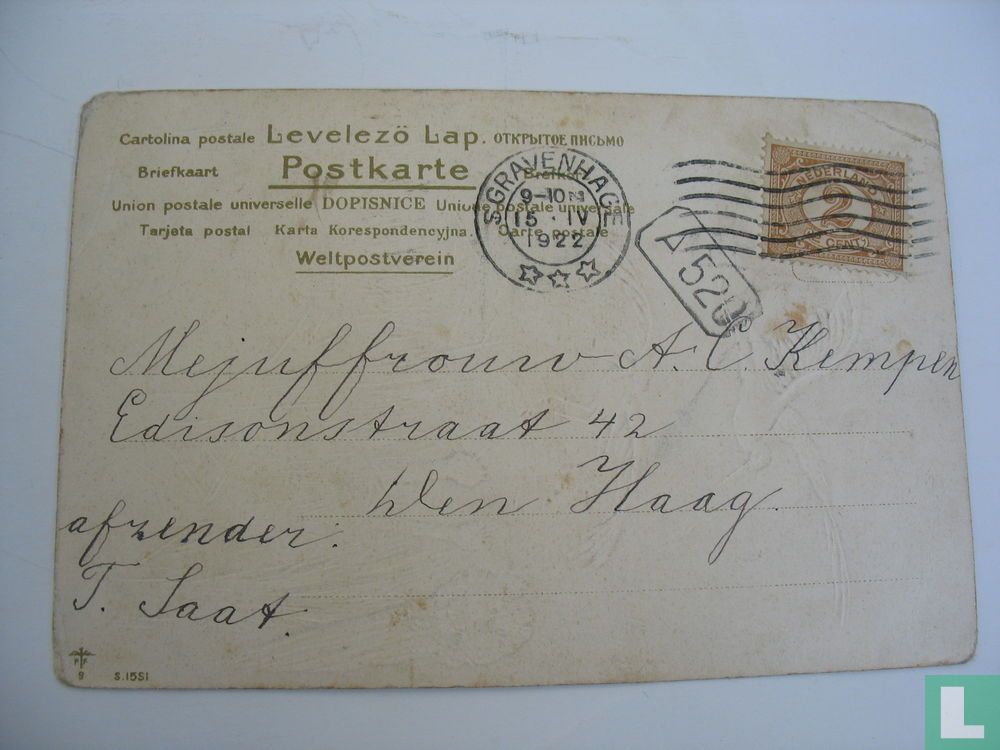 Cartolina postale Levelező Lap. ОТКРЫТОЕ ПИСЬМО
Briefkaart Postkarte
Union postale universelle DOPISNICE Union postale universale
Tarjeta postal Karta Korespondencyjna. Carte postale
Weltpostverein
SGRAVENHAGE
9-10
15 IV
1922
NEDERLAND
2
CENT
A 520
Mejuffrouw A. C. Kempen
Edisonstraat 42
Den Haag.
afzender:
T. Saat.
P F
9 S.15SI
L